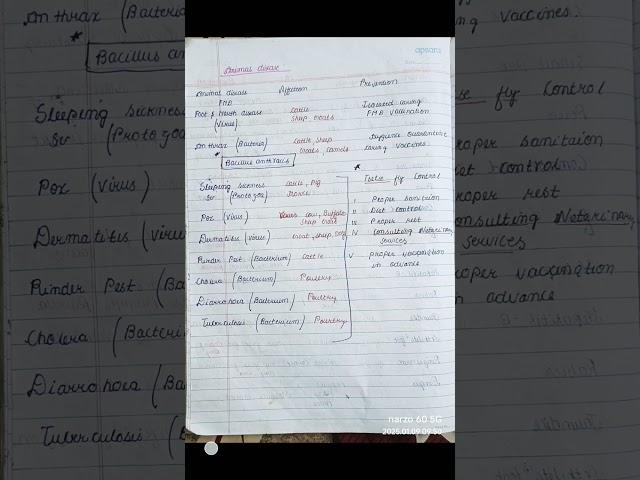 apsara
Animal disease
Animal disease Affection Prevention
FMD
Foot & Mouth disease cattle
(Virus) Sheep, Goats FMD Vaccination
Anthrax (Bacteria) Cattle, Sheep
Goats, Camels Vaccines
* Bacillus anthracis
Sleeping sickness Cattle, Pig * Tsetse fly Control
or (Protozoa) Horse
i Proper sanitation
Pox (Virus) Virus Cow, Buffalo ii Diet control
Sheep Goat iii Proper rest
Dermatitis (Virus) Goat, Sheep, Dog iv Consulting Vetarinary
services
Rinder Pest (Bacterium) Cattle v proper vaccination
in advance
Cholera (Bacterium) Poultry
Diarrohoea (Bacterium) Poultry
Tuberculosis (Bacterium) Poultry
narzo 60 5G
2025.01.09 09:50